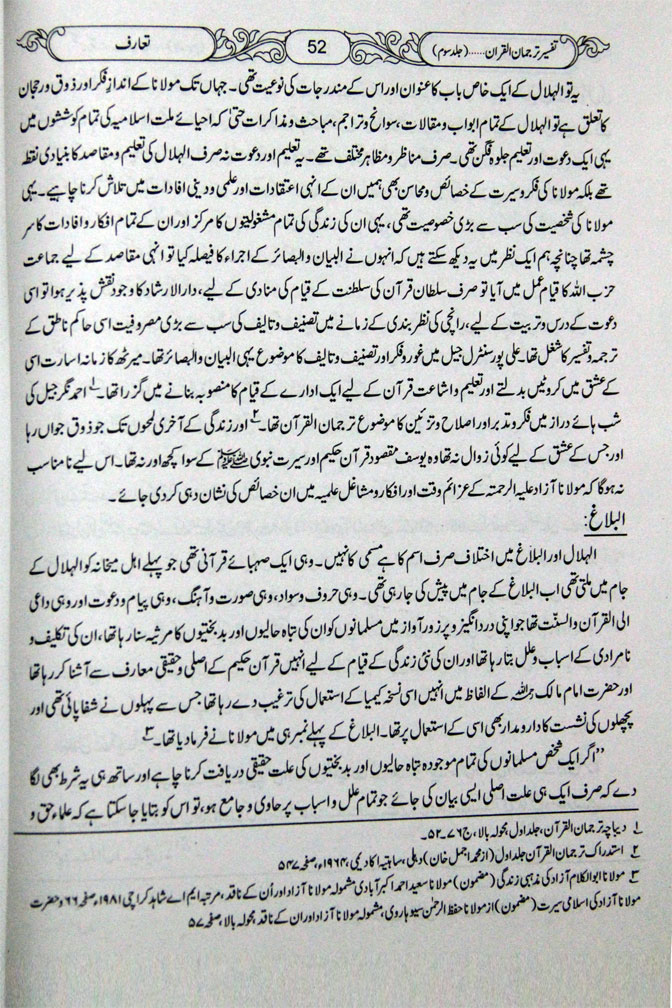 تفسیر ترجمان القرآن.....(جلد سوم) 52 تعارف
یہ تو الہلال کے ایک خاص باب کا عنوان اور اس کے مندرجات کی نوعیت تھی۔ جہاں تک مولانا کے اندازِ فکر اور ذوق ورجحان
کا تعلق ہے تو الہلال کے تمام ابواب و مقالات، سوانح و تراجم، مباحث و مذاکرات حتیٰ کہ احیائے ملت اسلامیہ کی تمام کوششوں میں
یہی ایک دعوت اور تعلیم جلوہ فگن تھی۔ صرف مناظر و مظاہر مختلف تھے۔ یہ تعلیم اور دعوت نہ صرف الہلال کی تعلیم و مقاصد کا بنیادی نقطہ
تھے بلکہ مولانا کی فکر و سیرت کے خصائص و محاسن بھی ہمیں ان کے انہی اعتقادات اور علمی و دینی افادات میں تلاش کرنا چاہیے۔ یہی
مولانا کی شخصیت کی سب سے بڑی خصوصیت تھی، یہی ان کی زندگی کی تمام مشغولیتوں کا مرکز اور ان کے تمام افکار و افادات کا سر
چشمہ تھا چنانچہ ہم ایک نظر میں یہ دیکھ سکتے ہیں کہ انہوں نے البیان والبصائر کے اجراء کا فیصلہ کیا تو انہی مقاصد کے لیے جماعت
حزب اللہ کا قیام عمل میں آیا تو صرف سلطان قرآن کی سلطنت کے قیام کی منادی کے لیے، دارالارشاد کا وجود نقش پذیر ہوا تو اسی
دعوت کے درس و تربیت کے لیے، رانچی کی نظر بندی کے زمانے میں تصنیف و تالیف کی سب سے بڑی مصروفیت اسی حاکم ناطق کے
ترجمہ و تفسیر کا شغل تھا۔ علی پور سنٹرل جیل میں غور و فکر اور تصنیف و تالیف کا موضوع یہی البیان والبصائر تھا۔ میرٹھ کا زمانہ اسارت اسی
کے عشق میں کروٹیں بدلتے اور تعلیم و اشاعت قرآن کے لیے ایک ادارے کے قیام کا منصوبہ بنانے میں گزرا تھا۔۱ احمد نگر جیل کی
شب ہائے دراز میں فکر و تدبر اور اصلاح و تزئین کا موضوع ترجمان القرآن تھا۔۲ اور زندگی کے آخری لمحوں تک جو ذوق جواں رہا
اور جس کے عشق کے لیے کوئی زوال نہ تھا وہ یوسف مقصود قرآن حکیم اور سیرت نبوی ﷺ کے سوا کچھ اور نہ تھا۔ اس لیے نامناسب
نہ ہوگا کہ مولانا آزاد علیہ الرحمتہ کے عزائم وقت اور افکار و مشاغل علمیہ میں ان خصائص کی نشان دہی کر دی جائے۔
البلاغ:
الہلال اور البلاغ میں اختلاف صرف اسم کا ہے مسمی کا نہیں۔ وہی ایک صہبائے قرآنی تھی جو پہلے اہل میخانہ کو الہلال کے
جام میں ملتی تھی اب البلاغ کے جام میں پیش کی جارہی تھی۔ وہی حروف و سواد، وہی صورت و آہنگ، وہی پیام و دعوت اور وہی داعی
الی القرآن والسنت تھا جو اپنی درد انگیز و پرزور آواز میں مسلمانوں کو ان کی تباہ حالیوں اور بدبختیوں کا مرثیہ سنا رہا تھا، ان کی تکلیف و
نامرادی کے اسباب و علل بتا رہا تھا اور ان کی نئی زندگی کے قیام کے لیے انہیں قرآن حکیم کے اصلی و حقیقی معارف سے آشنا کر رہا تھا
اور حضرت امام مالک رحمہ اللہ کے الفاظ میں انہیں اسی نسخہ کیمیا کے استعمال کی ترغیب دے رہا تھا جس سے پہلوں نے شفا پائی تھی اور
پچھلوں کی نشست کا دارومدار بھی اسی کے استعمال پر تھا۔ البلاغ کے پہلے نمبر ہی میں مولانا نے فرما دیا تھا۔۳
”اگر ایک شخص مسلمانوں کی تمام موجودہ تباہ حالیوں اور بدبختیوں کی علت حقیقی دریافت کرنا چاہے اور ساتھ ہی یہ شرط بھی لگا
دے کہ صرف ایک ہی علت اصلی ایسی بیان کی جائے جو تمام علل و اسباب پر حاوی و جامع ہو، تو اس کو بتایا جاسکتا ہے کہ علماء حق و
۱ دیباچہ ترجمان القرآن، جلد اول، محولہ بالا، ج ۷۶۔۵۲۔
۲ استدراک ترجمان القرآن جلد اول (از محمد اجمل خان) دہلی، ساہتیہ اکادیمی، ۱۹۶۴ء، صفحہ ۵۴۷
۳ مولانا ابوالکلام آزاد کی مذہبی زندگی (مضمون) مولانا سعید احمد اکبر آبادی مشمولہ مولانا آزاد اور اُن کے ناقد، مرتبہ ایم اے شاہد کراچی ۱۹۸۱ء، صفحہ ۶۶ و حضرت
مولانا آزاد کی اسلامی سیرت (مضمون) از مولانا حفظ الرحمٰن سیوہاروی، مشمولہ مولانا آزاد اور ان کے ناقد، محولہ بالا، صفحہ ۵۷